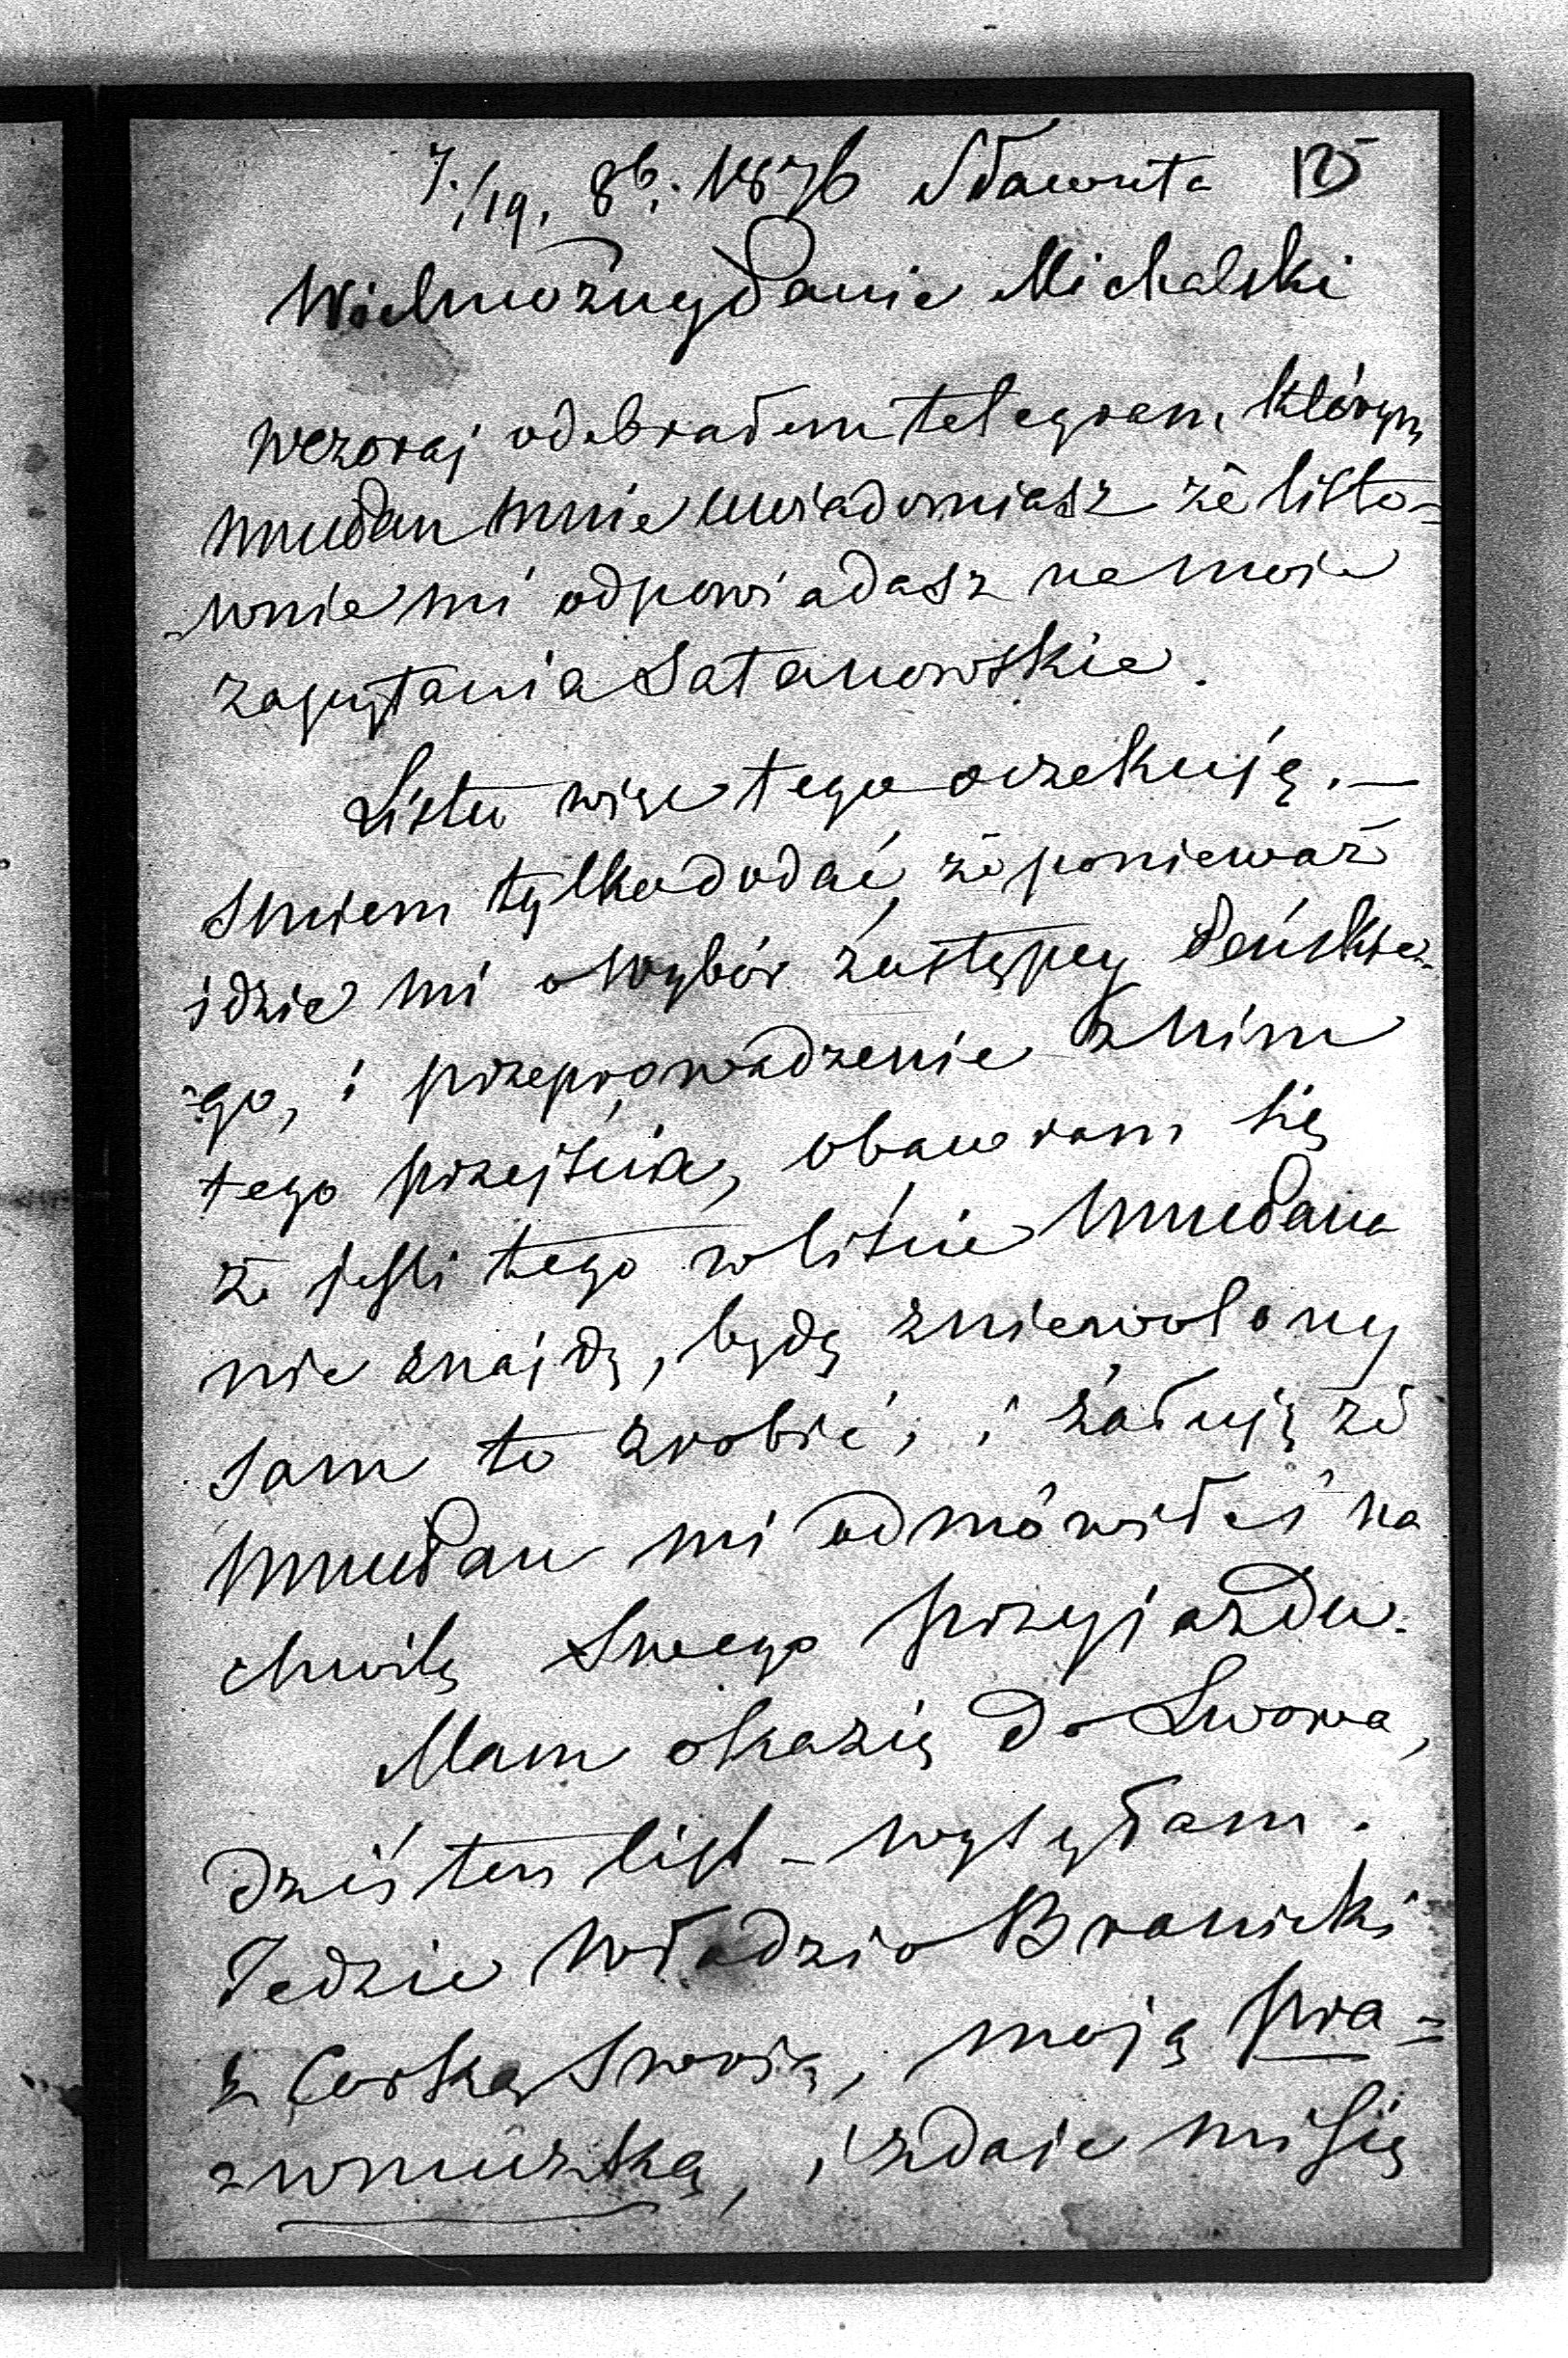 7./19. 8b. 1876 Sławuta 125
Wielmożny Panie Michalski
Wczoraj odebrałem telegram, którym
WMPan mnie uwiadomiasz że listo-
-wnie mi odpowiadasz na moie
zapytania Satanowskie.
Listu więc tego oczekuję. —
Smiem tylko dodać, że ponieważ
idzie mi o wybór zastępcy Pańskie-
-go, i przeprowadzenie z nim
tego przejścia, obawiam się
że jeśli tego w liście WMPana
nie znajdę, będę zniewolony
sam to zrobić; i żałuję że
WMPan mi odmówiłeś na
chwilę Swego przyjazdu.
Mam okazią do Lwowa,
dziś ten list - wysyłam.
Jedzie Władzio Branicki
z Corką Swoią, moją pra-
-wnuczką, i zdaie mi się